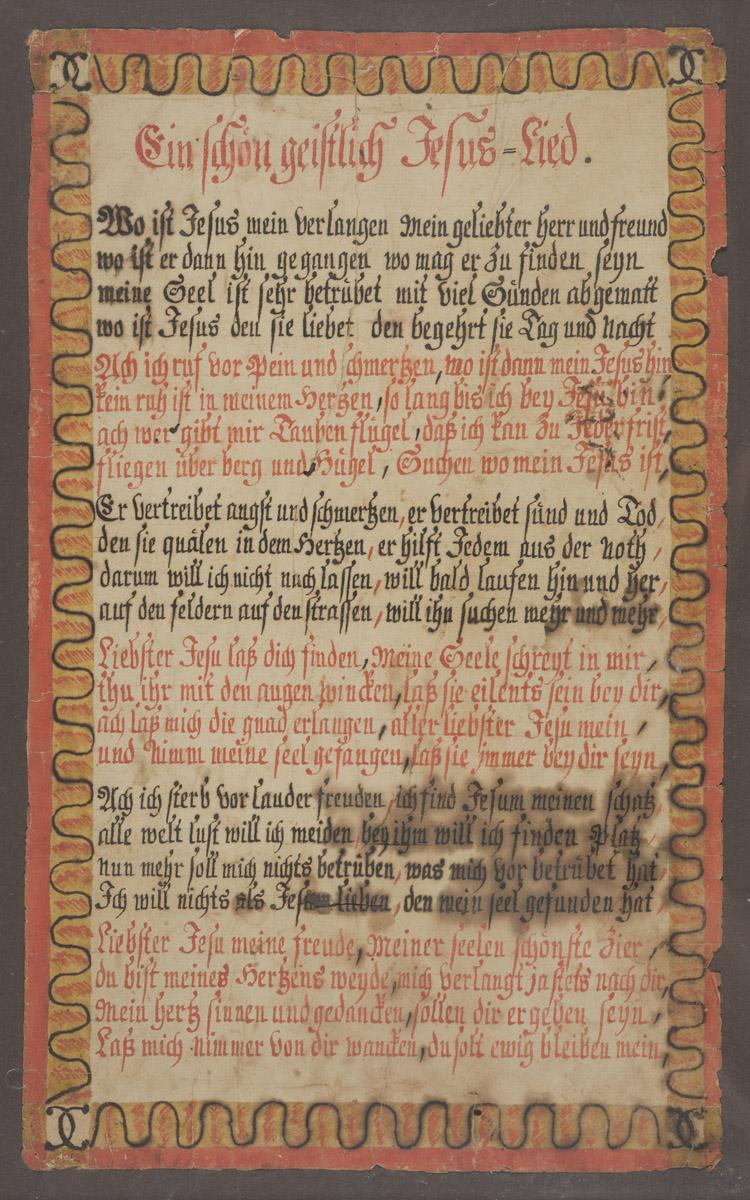 Ein schön geistlich Jesus=Lied.
Wo ist Jesus mein verlangen Mein geliebter herr und freund
wo ist er dann hin gegangen wo mag er zu finden seyn
meine Seel ist sehr betrübet mit viel Sünden abgematt
wo ist Jesus den sie liebet den begehrt sie Tag und Nacht
Ach ich ruf vor Pein und schmertzen, wo ist dann mein Jesus hin
kein ruh ist in meinem Hertzen, so lang bis ich bey Jesu bin,
ach wer gibt mir Tauben flügel, daß ich kan zu Jeder frist,
fliegen über berg und Hügel, Suchen wo mein Jesus ist,
Er vertreibet angst und schmertzen, er vertreibet sünd und Tod,
den sie quälen in dem Hertzen, er hilft Jedem aus der Noth,
darum will ich nicht nach lassen, will bald laufen hin und her,
auf den feldern auf den strassen, will ihn suchen mehr und mehr,
Liebster Jesu laß dich finden, Meine Seele schreyt in mir,
thu ihr mit den augen wincken, laß sie eilents sein bey dir,
ach laß mich die gnad erlangen, aller liebster Jesu mein,
und Nimm meine seel gefangen, laß sie immer bey dir seyn,
Ach ich sterb vor lauder freuden, ich find Jesum meinen schatz,
alle welt lust will ich meiden bey ihm will ich finden Platz,
nun mehr soll mich nichts betrüben, was mich vor betrübet hat,
Ich will nichts als Jesum lieben, den mein seel gefunden hat,
Liebster Jesu meine freude, Meiner seelen schönste Zier,
du bist meines Hertzens weyde, mich verlangt ja stets nach dir,
Mein hertz sinnen und gedancken, sollen dir ergeben seyn,
Laß mich nimmer von dir wancken, du solt ewig bleiben mein,